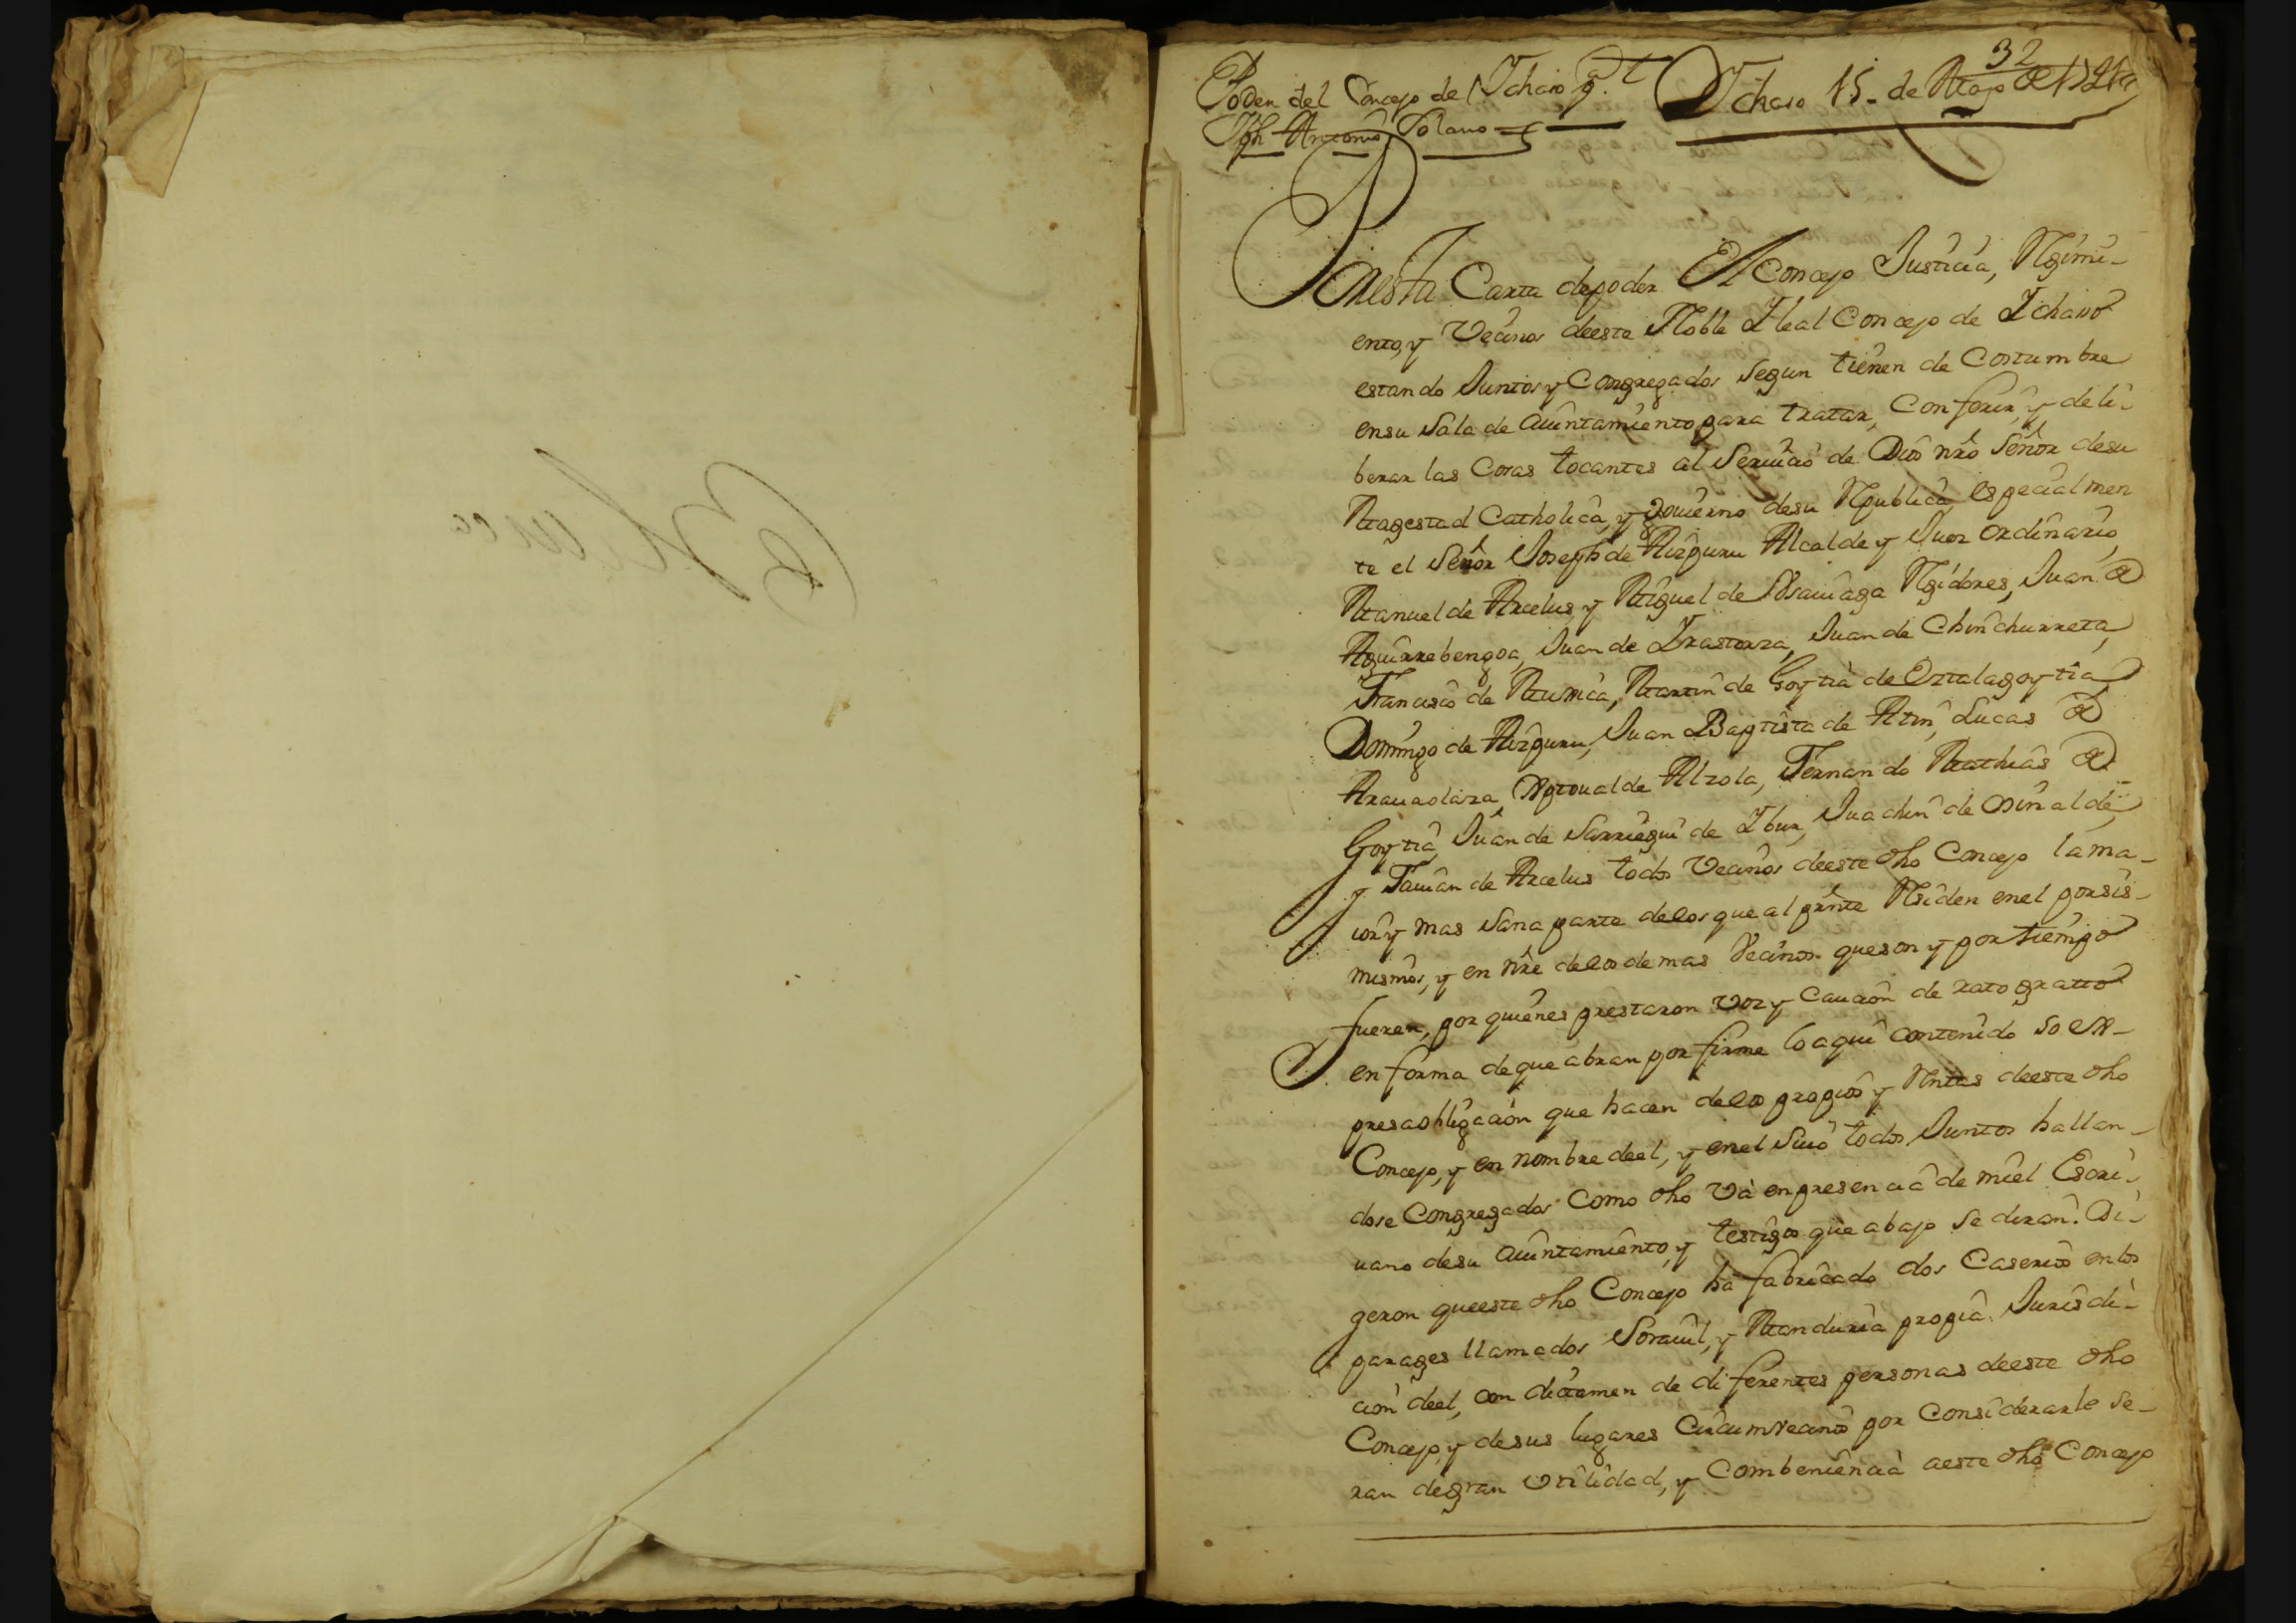 32
Poder del Concejo de Ychaso pª
Jph Antonio Solano
Ychaso 15 de Mayo de
En esta Carta de poder El Concejo Justicia, Rẽgimi-
ento, y Vecinos deeste Noble Y leal Concejo de Ychaso
estando Juntos y Congregados segun tienen de Costumbre
ensu Sala de Aiuntamiento para tratar, Conferir, y deli-
berar las Cosas tocantes al Seruicio de Dios nrô Señor desu
Magestad Catholica, y gouierno desu Rẽpublica especialmen
te el Señor Joseph de Aizpuru Alcalde y Juez ordinario,
Manuel de Arcelus y Miguel de Rẽgidores, Juan de
Aguirrebengoa, Juan de Yrastorza, Juan de Chinchurreta,
Francisco de Martin de Goytia de Oztalagoytia,
Domingo de Aizpuru, Juan Baptista de Atin, Lucas de
Arauaolaza, de Alzola, Fernando Mathias de
Goytia, Juan de Sarriegui de Ybur, Juachin de
y de Arcelus todos Vecinos deeste dho Concejo la ma-
ior y mas Sana parte delos que al preste Rẽsiden enel por sis-
mismos, y en nre delos demas Vecinos que son y por tiempo
fueren, por quienes prestaron Voz y Caucion de rato gratto
en forma deque abran por firme lo aqui contenido so ex-
presa obligacion que hacen delos propios y Rẽntas deeste dho
Concejo, y en nombre deel, y enel Suio todos Juntos hallan-
dose Congregados como dho Và en presencia de mi el Escri-
uano desu Aiuntamiento, y testigos que abajo se diran. Di-
geron queeste dho Concejo ha fabricado dos Caserios en los
parages llamados Sorauil, y Manduria propia Jurisdi-
cion deel, con dictamen de diferentes personas deeste dho
Concejo, y desus lugares Circumvecinos por Considerarle se-
ran degran Vtilidad, y Combeniencia aeste dho Concejo